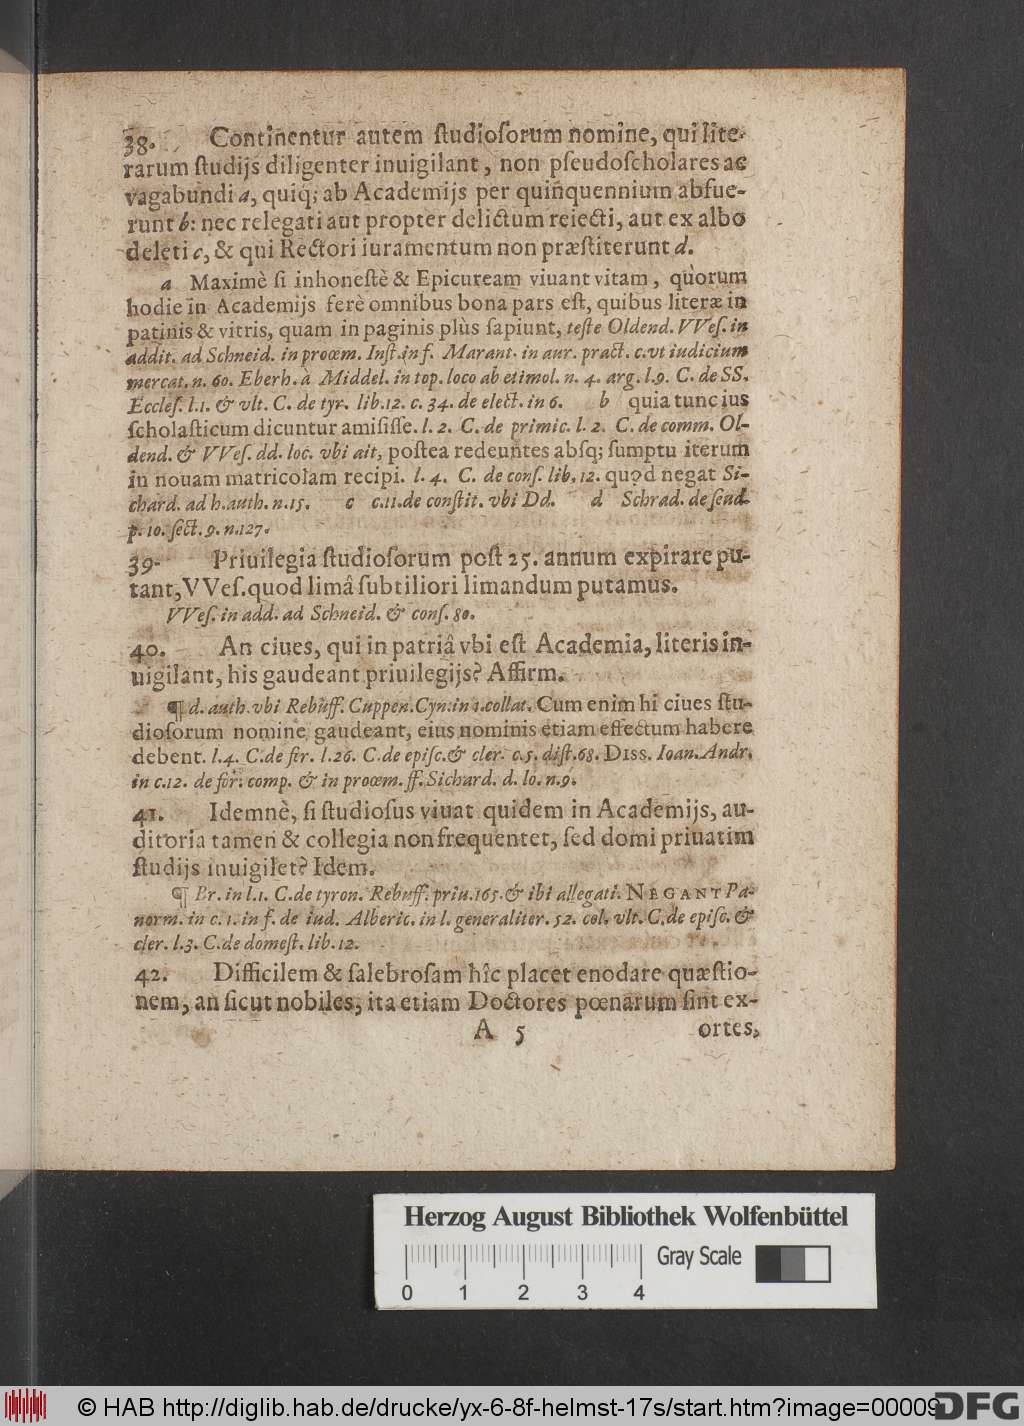 38. Continentur autem ſtudioſorum nomine, qui lite-
rarum ſtudijs diligenter inuigilant, non pſeudoſcholares ac
vagabundi a, quiq; ab Academijs per quinquennium abfue-
runt b: nec relegati aut propter delictum reiecti, aut ex albo
deleti c, & qui Rectori iuramentum non præſtiterunt d.
a Maximè ſi inhoneſtè & Epicuream viuant vitam, quorum
hodie in Academijs ferè omnibus bona pars eſt, quibus literæ in
patinis & vitris, quam in paginis plùs ſapiunt, teſte Oldend. VVeſ. in
addit. ad Schneid. in proœm. Inſt. in f. Marant. in aur. pract. c. vt iudicium
mercat. n. 60. Eberh. à Middel. in top. loco ab etimol. n. 4. arg. l. 9. C. de SS.
Eccleſ. l. 1. & vlt. C. de tyr. lib. 12. c. 34. de elect. in 6. b quia tunc ius
ſcholaſticum dicuntur amiſiſſe. l. 2. C. de primic. l. 2. C. de comm. Ol-
dend. & VVeſ. dd. loc. vbi ait, poſtea redeuntes abſq; ſumptu iterum
in nouam matricolam recipi. l. 4. C. de conſ. lib. 12. quod negat Si-
chard. ad h. auth. n. 15. c c. 11. de conſtit. vbi Dd. d Schrad. de feud.
p. 10. ſect. 9. n. 127.
39. Priuilegia ſtudioſorum poſt 25. annum expirare pu-
tant, VVeſ. quod limâ ſubtiliori limandum putamus.
VVeſ. in add. ad Schneid. & conſ. 80.
40. An ciues, qui in patriâ vbi eſt Academia, literis in-
uigilant, his gaudeant priuilegijs? Affirm.
¶ d. auth. vbi Rebuff. Cuppen. Cyn. in 1. collat. Cum enim hi ciues ſtu-
dioſorum nomine gaudeant, eius nominis etiam effectum habere
debent. l. 4. C. de fer. l. 26. C. de epiſc. & cler. c. 5. diſt. 68. DISS. Ioan. Andr.
in c. 12. de for. comp. & in proœm. ff. Sichard. d. lo. n. 9.
41. Idemnè, ſi ſtudioſus viuat quidem in Academijs, au-
ditoria tamen & collegia non frequentet, ſed domi priuatim
ſtudijs inuigilet? Idem.
¶ Br. in l. 1. C. de tyron. Rebuff. priu. 165. & ibi allegati. NEGANT Pa-
norm. in c. 1. in f. de iud. Alberic. in l. generaliter. 52. col. vlt. C. de epiſc. &
cler. l. 3. C. de domeſt. lib. 12.
42. Difficilem & ſalebroſam hîc placet enodare quæſtio-
nem, an ſicut nobiles, ita etiam Doctores pœnarum ſint ex-
A 5 ortes,
Herzog August Bibliothek Wolfenbüttel
Gray Scale
0 1 2 3 4
© HAB http://diglib.hab.de/drucke/yx-6-8f-helmst-17s/start.htm?image=00009
DFG